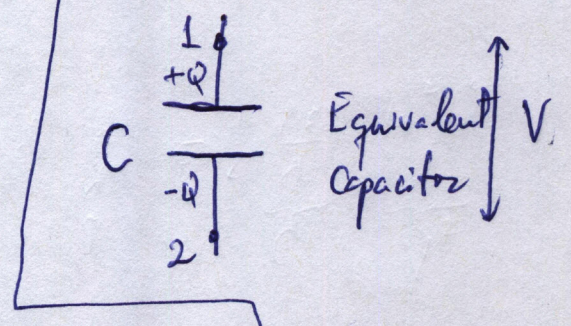 1
+Q
C
-Q
2
Equivalent
Capacitor
V